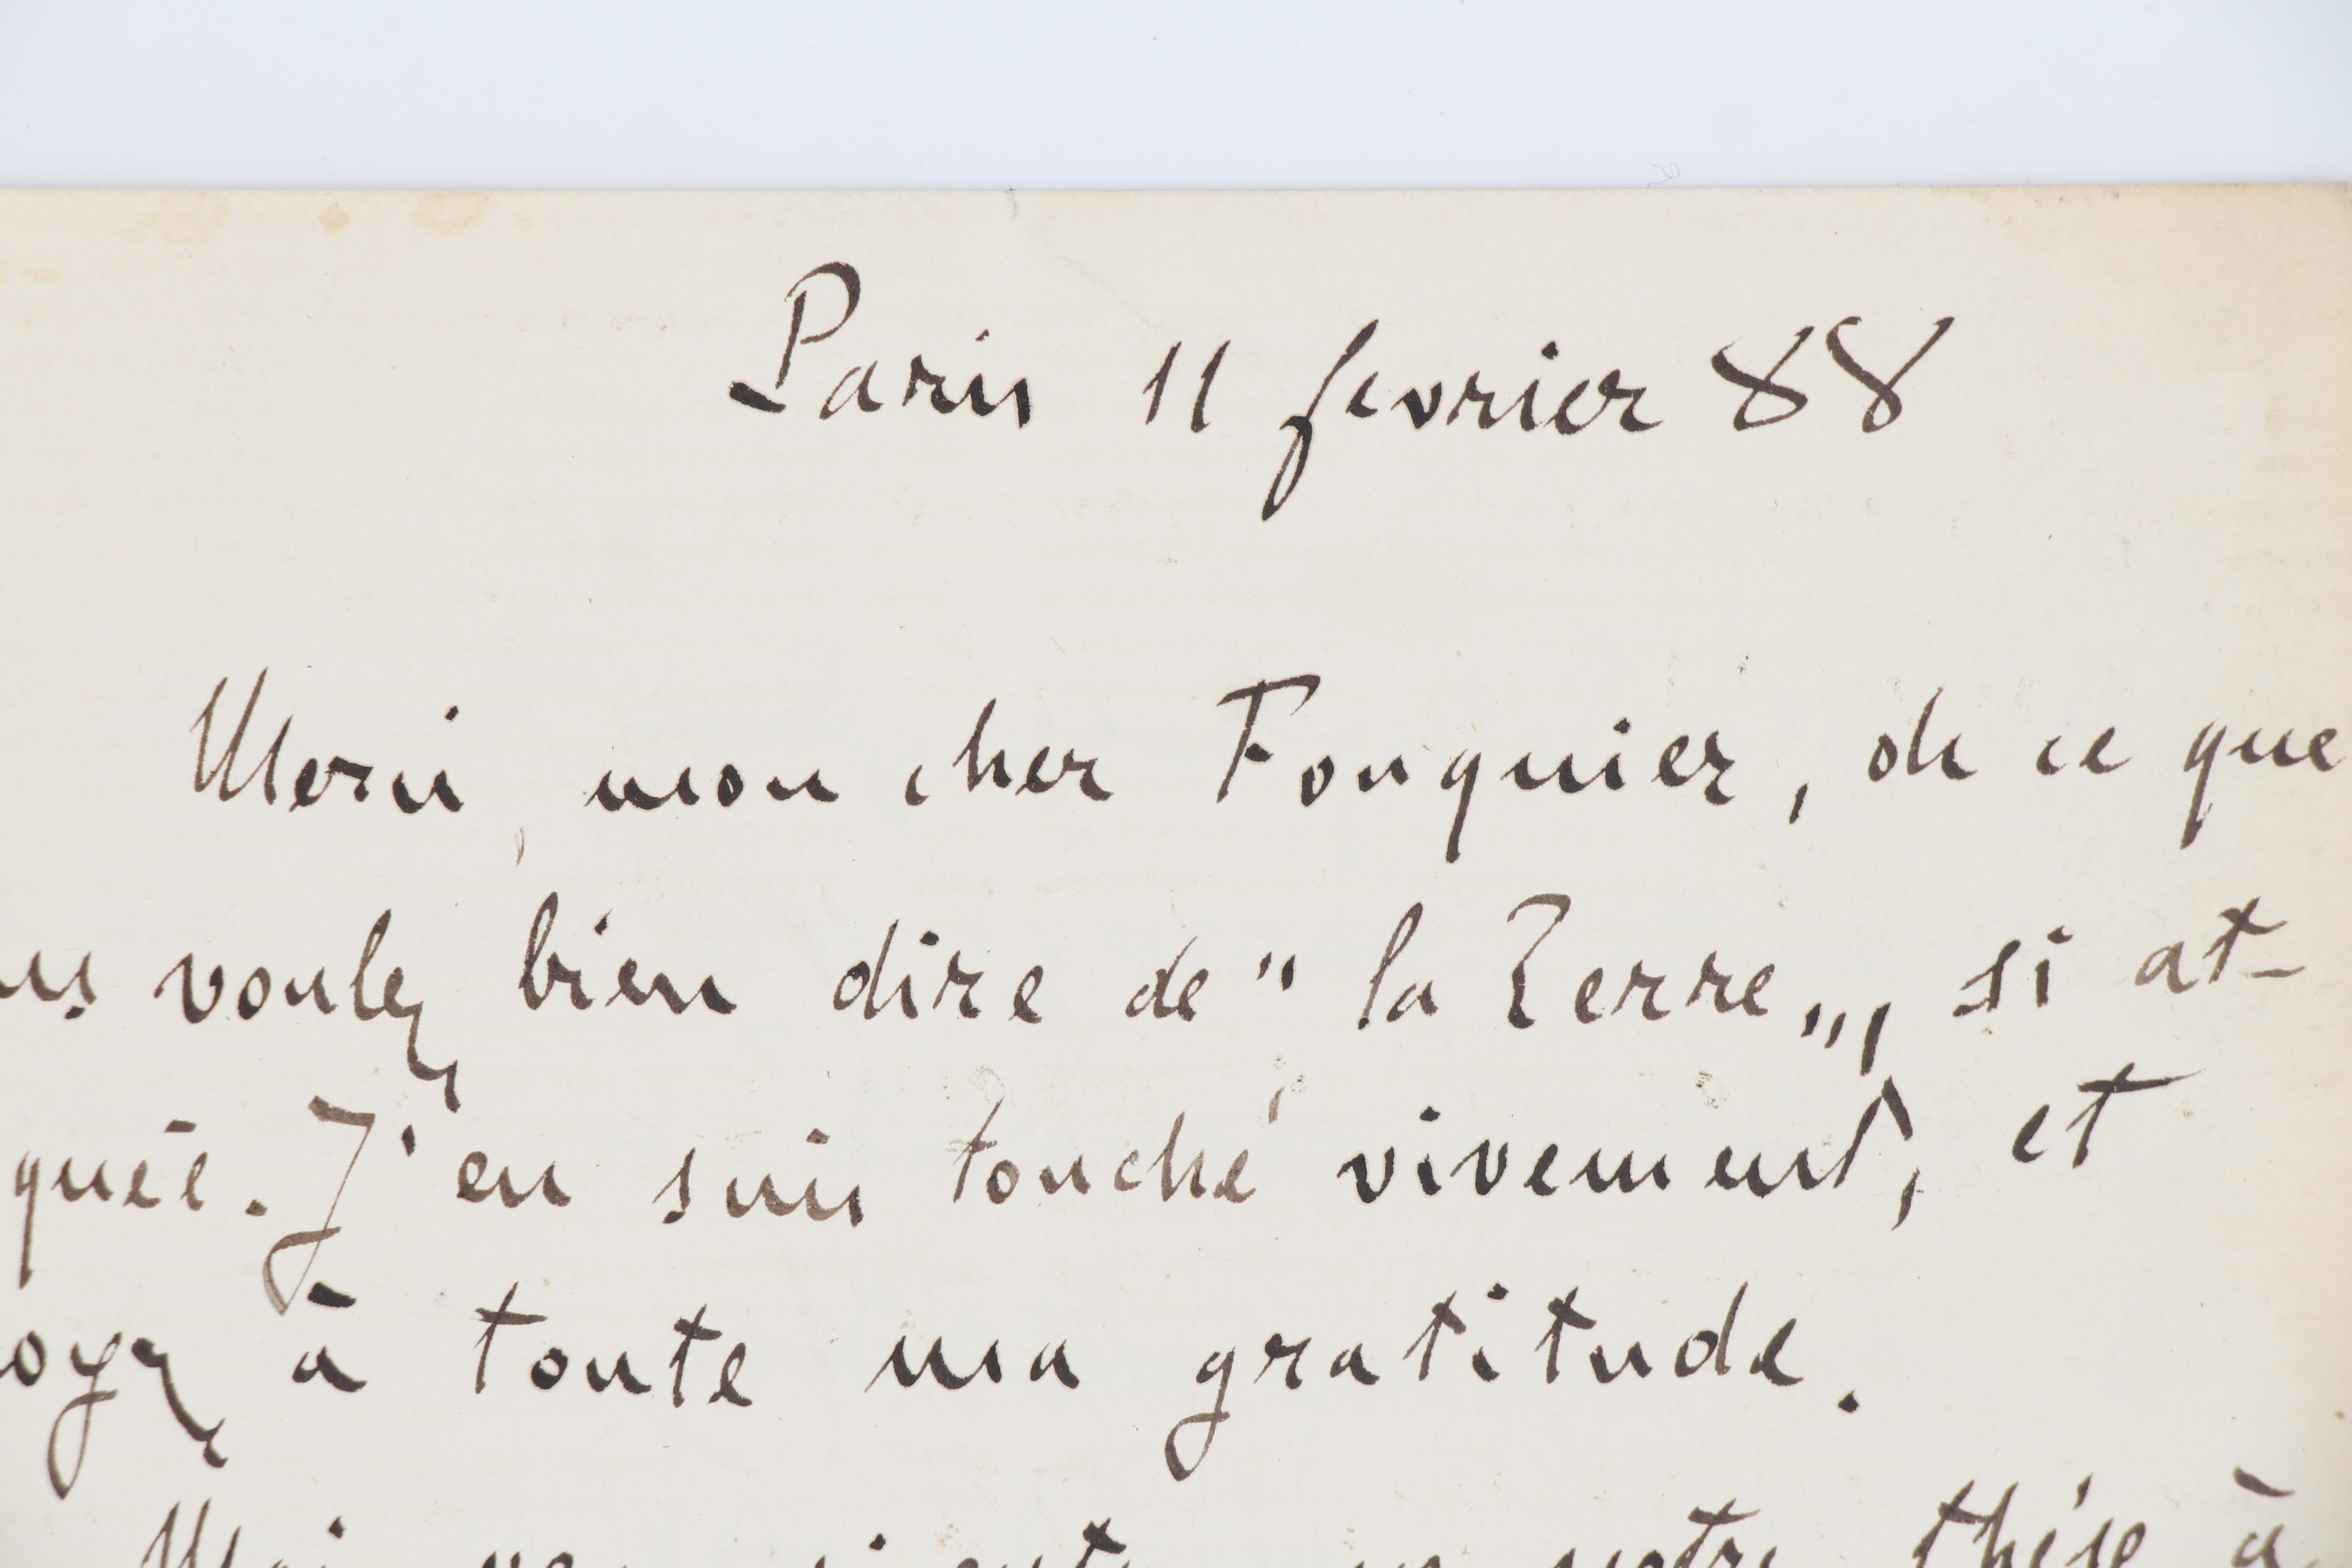 Paris 11 fevrier 88
Merci, mon cher Fouquier, de ce que
us voulez bien dire de " la Terre „, si at-
quée. J'en suis touché vivement, et
oyez à toute ma gratitude.
votre thése à